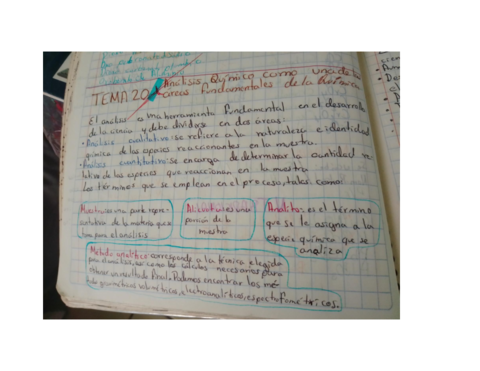 Análisis Químico como una de las
TEMA 20 áreas fundamentales de la Química
El análisis una herramienta fundamental en el desarrollo
de la ciencia y debe dividirse en dos áreas:
• Análisis cualitativo: se refiere a la naturaleza e identidad
química de las especies reaccionantes en la muestra.
• Análisis cuantitativo: se encarga de determinar la cantidad re-
lativa de las especies que reaccionan en la muestra
Los términos que se emplean en el proceso, tales como:
Muestra: es una parte repre-
sentativa de la materia que se
toma para el análisis
Alícuota: es una
porción de la
muestra
Analito: es el término
que se le asigna a la
especie química que se
analiza
Método analítico: corresponde a la técnica elegida
para el análisis, así como los cálculos necesarios para
obtener un resultado final. Podemos encontrar los mé-
todo gravimétricos, volumétricos, electroanalíticos, espectrofotométricos.